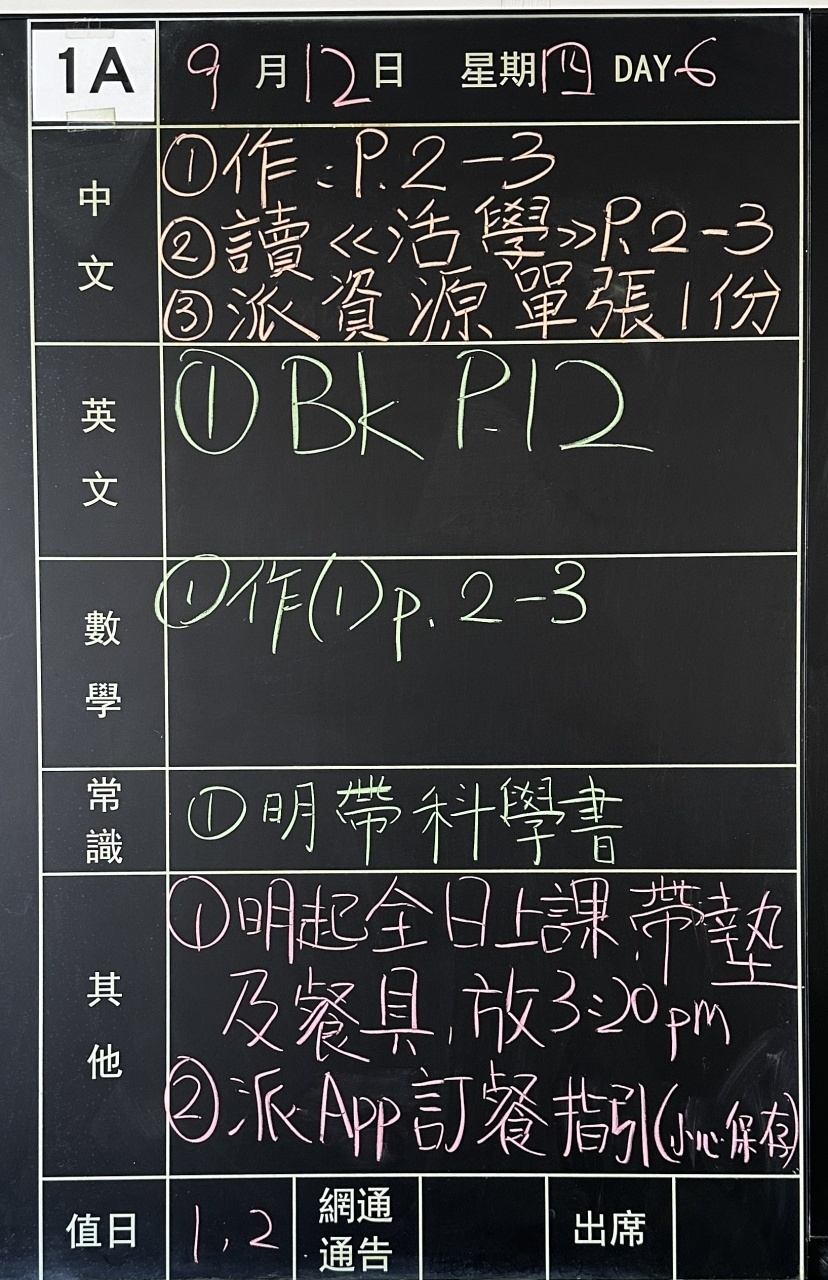 1A 9月12日 星期四 DAY 6
中文
①作：P.2-3
②讀《活學》P.2-3
③派資源單張1份
英文
①Bk P.12
數學
①作(1)p.2-3
常識
①明帶科學書
其他
①明起全日上課帶墊
及餐具，放3:20pm
②派App訂餐指引(小心保存)
值日 1,2 網通通告 出席